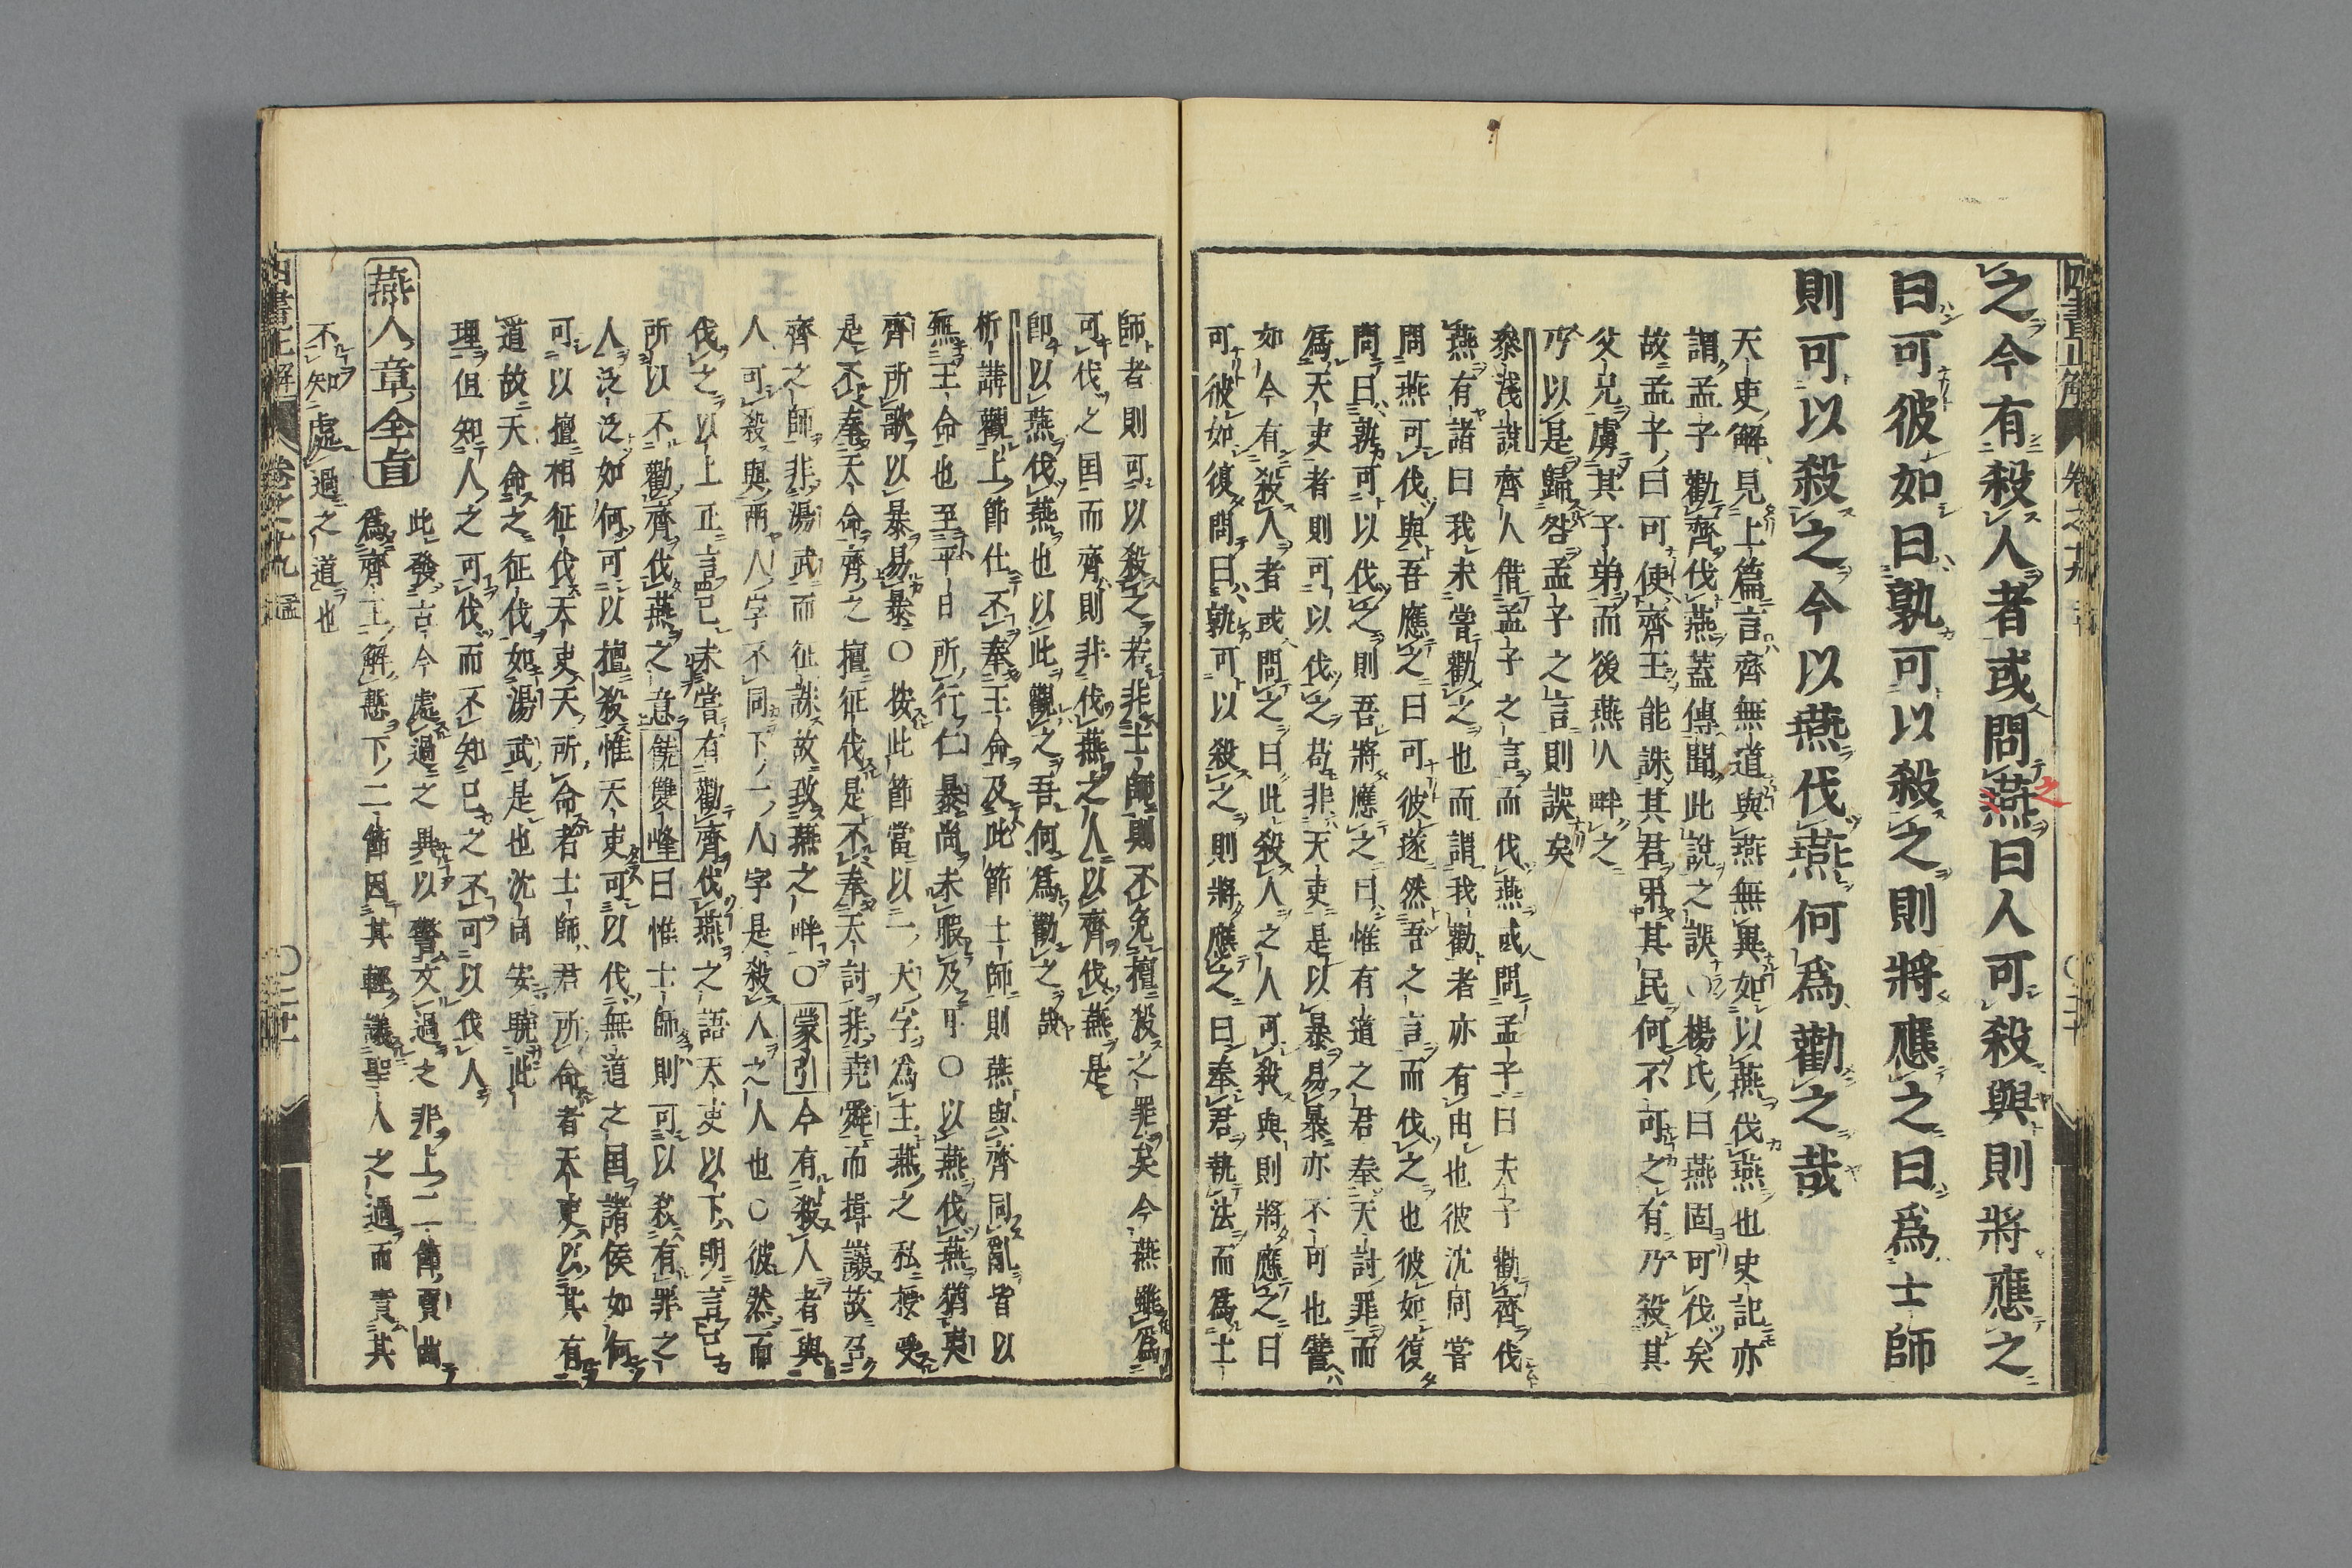 之今有殺人者或問燕曰人可殺與則將應之
之
曰可彼如曰孰可以殺之則將應之曰爲士師
則可以殺之今以燕伐燕何爲勸之哉
天吏解見上篇言齊無道與燕無異如以燕伐燕也史記亦
謂孟子勸齊伐燕蓋傳聞此說之誤○楊氏曰燕固可伐矣
故孟子曰可使齊王能誅其君弔其民何不可之有乃殺其
父兄虜其子弟而後燕人畔之
乃以是歸咎孟子之言則誤矣
參淺說齊人借孟子之言而伐燕或問孟子曰夫子勸齊伐
燕有諸曰我未嘗勸之也而謂我勸者亦有由也彼沈同嘗
問燕可伐與吾應之曰可彼遂然吾之言而伐之也彼如復
問曰孰可以伐之則吾將應之曰惟有道之君奉天討罪而
爲天吏者則可以伐之苟非天吏是以暴易暴亦不可也譬
如今有殺人者或問之曰此殺人之人可殺與則將應之曰
可彼如復問曰孰可以殺之則將應之曰奉君執法而爲士
師者則可以殺之若非士師則不免擅殺之罪矣今燕雖爲
可伐之国而齊則非伐燕之人以齊伐燕是
卽以燕伐燕也以此觀之吾何爲勸之哉
析講觀上節仕不奉王命及此節士師則燕與齊同亂皆以
無王命也至平日所行仁暴尚未暇及耳○以燕伐燕猶夷
齊所歌以暴易暴○按此節當以一天字爲主燕之私授受
是不奉天命齊之擅征伐是不奉天討非堯舜而揖讓故召
齊之師非湯武而征誅故致燕之畔○蒙引今有殺人者與
人可殺與兩人字不同下一人字是殺人之人也○彼然而
伐之以上正言己未嘗有勸齊伐燕之語天吏以下明言己
所以不勸齊伐燕之意饒雙峰曰惟士師則可以殺有罪之
人泛泛如何可以擅殺惟天吏可以伐無道之国諸侯如何
可以擅相征伐天吏天所命者士師君所命者天吏以其有
道故天命之征伐如湯武是也沈同安曉此
理但知人之可伐而不知己之不可以伐人
燕人章全旨
此發古今處過之異以警文過之非上二節賈曲
爲齊王解慙下二節因其輕議聖人之過而責其
不知處過之道也
四書正解
卷之十九
孟